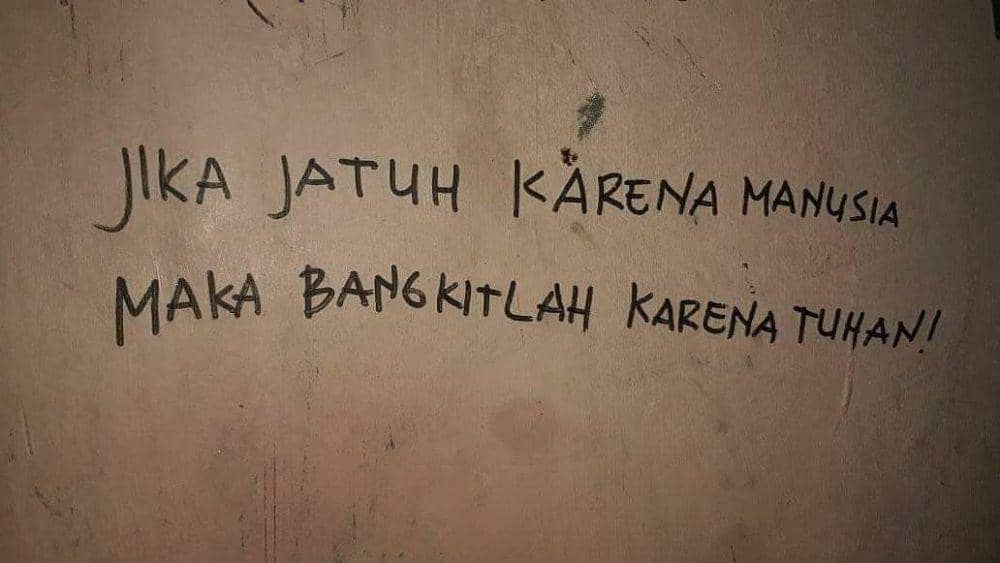 JIKA JATUH KARENA MANUSIA
MAKA BANGKITLAH KARENA TUHAN!